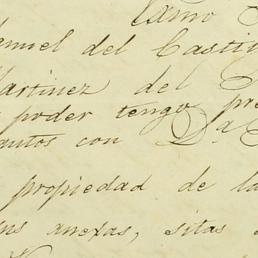 tamo
anuel del Castil
artinez del
poder tengo pre
autos con D.ª
propiedad de la
sus anexas, sitas